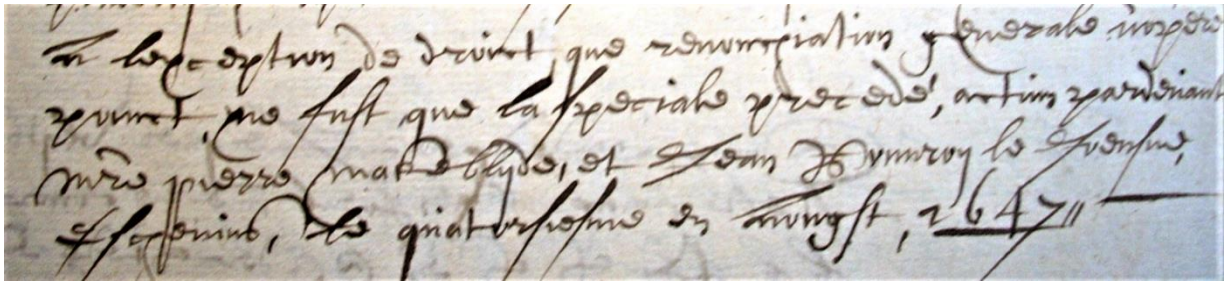 a lexception de droict, que renonciation generale nopere
poinct, ne fust que la speciale precede, actum pardevant
Mre pierre makeblyde, et Jean le
Eschevins, le quatorsiesme en Aougst, 1647